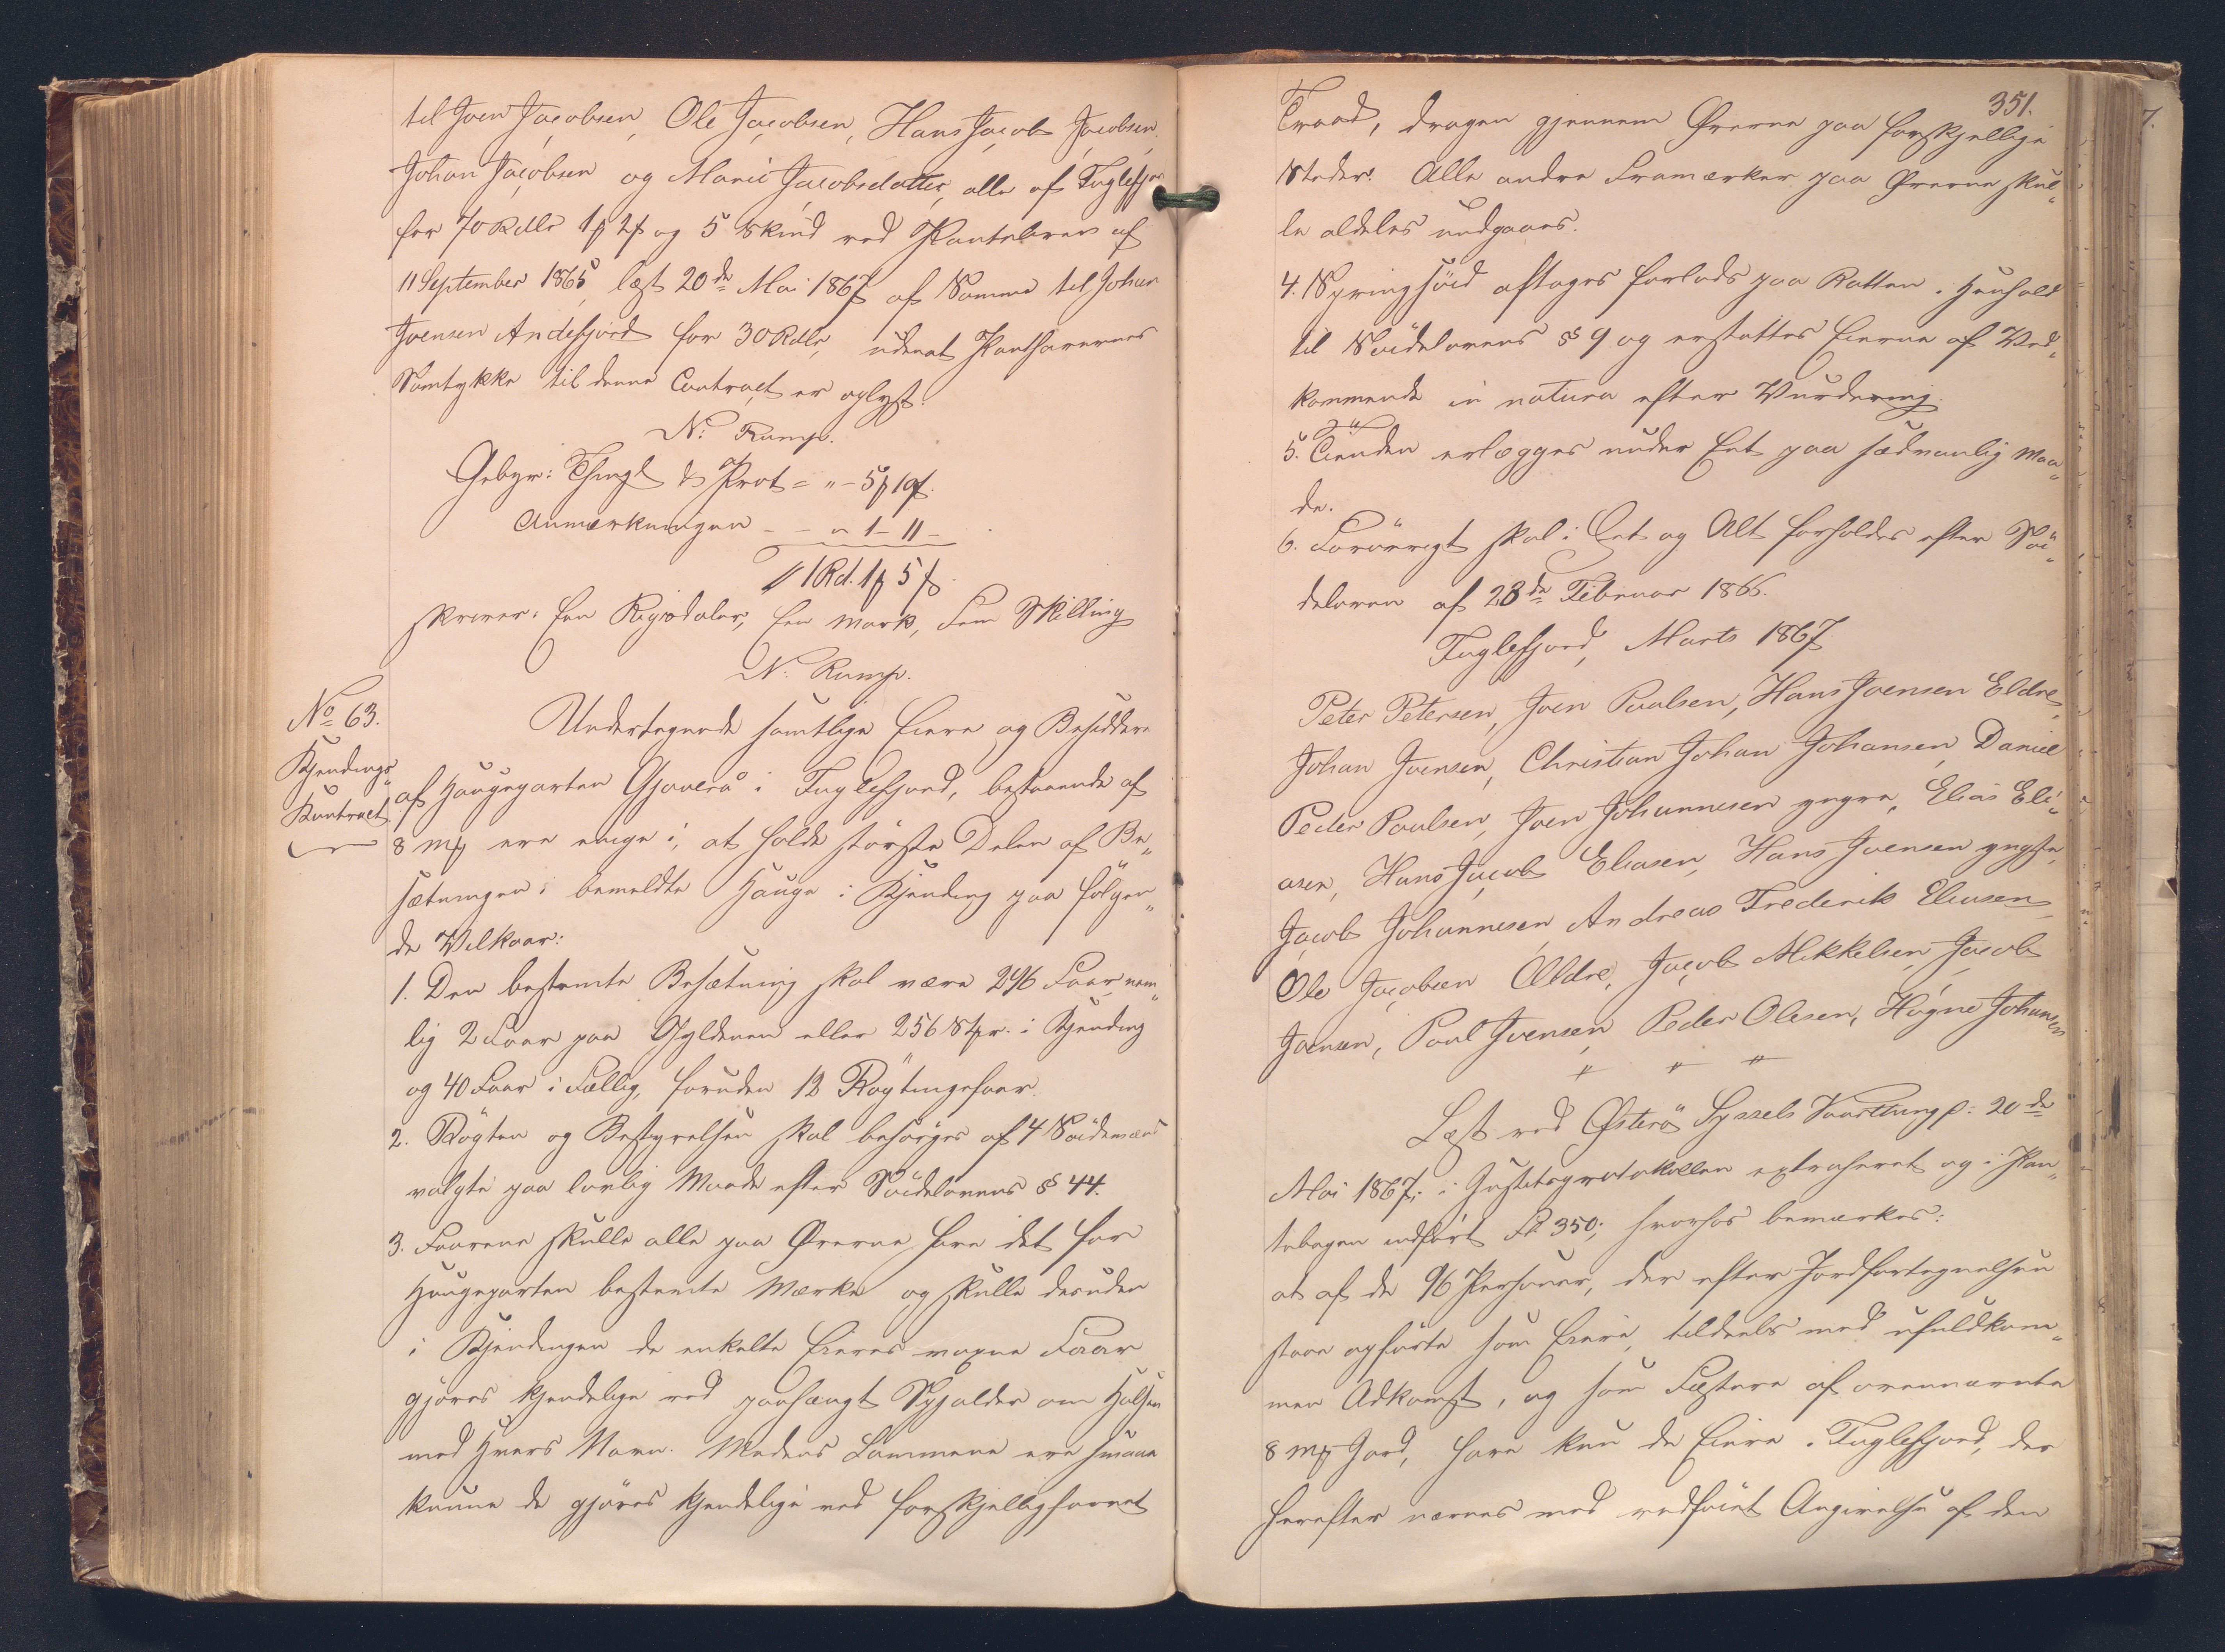 til Joen Jacobsen, Ole Jacobsen, Hans Jacob Jacobsen,
Johan Jacobsen og Marie Jacobsdatter, alle af Fuglefjord
for 70 Rdlr 1 2 og 5 Skind ved Pantebrev af
11 September 1865, læst 20de Mai 1867 af Samme til Johan
Joensen Andefjord for 30 Rdlr, udenat Panthavernes
Samtykke til denne Contract er oplyst.
N. Rump.
Gebyr: Thingl & Prot = " - 5 10
Anmærkningen - - " 1 - 11 -
1 Rd. 1 5
skriver: Een Rigsdaler, Een Mark, Fem Skilling
N. Rump.
No 63.
Kjendings„
Kontract.
Undertegnede samtlige Eiere og Besiddere
af Haugeparten Gjoverå i Fuglefjord, bestaaende af
8 mk ere enige i, at holde største Delen af Be„
sætningen i bemeldte Hauge i Kjending paa følgen„
de Vilkaar:
1. Den bestemte Besætning skal være 296 Faar, nem„
lig 2 Faar paa Gyldenen eller 256 Stkr. i Kjending
og 40 Faar i Fællig, foruden 12 Røgtingsfaar.
2. Røgten og Bestyrelsen skal besørges af 4 Soidemænd
valgte paa lovlig Maade efter Soidelovens § 44.
3. Faarene skulle alle paa Ørerne have det for
Haugeparten bestemte Mærke og skulle desuden
i Kjendingen de enkelte Eieres voxne Faar
gjøres kjendelige ved paahængt Spjalder om Halsen
med Hvers Navn. Medens Lammene ere smaae
kunne de gjøres kjendelige ved forskjelligfarvet
351.
Traad, dragen gjennem Ørerne paa forskjellige
Steder. Alle andre Framærker paa Ørerne skul„
le aldeles undgaaes.
4. Springsøid aftages forlods paa Rætten i Henhold
til Soidelovens § 9 og erstattes Eierne af Ved„
kommende in natura efter Vurdering.
5. Tienden erlægges under Eet paa sædvanlig Maa„
de.
6. Forøvrigt skal i Eet og Alt forholdes efter Soi„
deloven af 23de Februar 1866.
Fuglefjord, Marts 1867
Peter Petersen, Joen Poulsen, Hans Joensen Eldre,
Johan Joensen, Christian Johan Johansen, Daniel
Peder Poulsen, Joen Johannesen yngre, Elias Eli„
asen, Hans Jacob Eliasen, Hans Joensen yngste,
Jacob Johannesen, Andreas Frederik Eliasen,
Ole Jacobsen Ældre, Jacob Mikkelsen, Jacob
Joensen, Poul Joensen, Peder Olesen, Høgne Johansen
" " "
Læst ved Østerø Syssels Vaarthing p: 20de
Mai 1867; i Justitsprotokollen extraheret og i Pan„
tebogen indført Fol 350; hvorhos bemærkes:
at af de 96 Personer, der efter Jordfortegnelsen
staae opførte som Eiere, tildeels med ufuldkom„
men Adkomst, og som Fæstere af ovennævnte
8 mk Jord, have kun de Eiere i Fuglefjord, der
herefter nævnes med vedføiet Angivelse af den